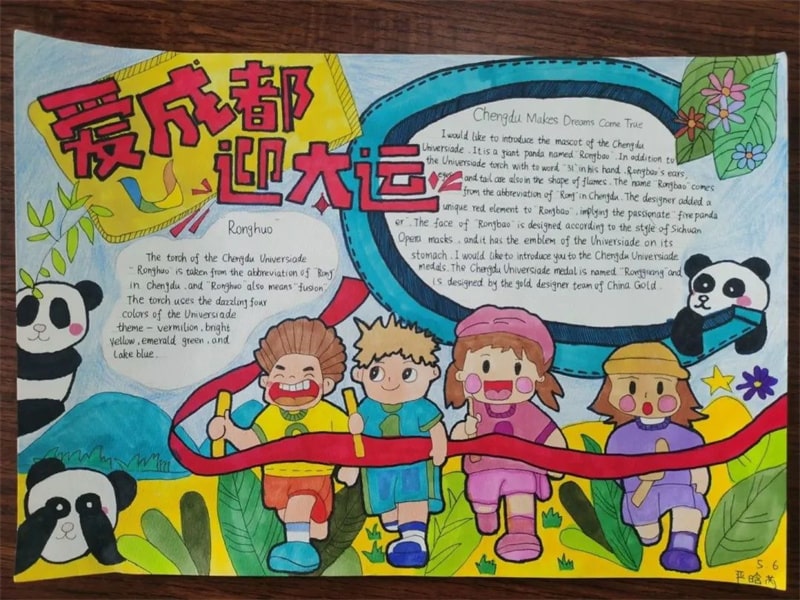 爱成都
迎大运
Ronghuo
The torch of the Chengdu Universiade
"Ronghuo" is taken from the abbreviation of "Rong"
in Chengdu, and "Ronghuo" also means "fusion".
The torch uses the dazzling four
colors of the Universiade
theme — vermilion, bright
yellow, emerald green, and
Lake blue.
Chengdu Makes Dreams Come True
I would like to introduce the mascot of the Chengdu
Universiade. It is a giant panda named "Rongbao". In addition to
the Universiade torch with to word "31" in his hand. Rongbao's ears,
and tail are also in the shape of flames. The name "Rongbao" comes
from the abbreviation of "Rong" in Chengdu. The designer added a
unique red element to "Rongbao", implying the passionate "fire panda
er". The face of "Rongbao" is designed according to the style of Sichuan
Opera masks, and it has the emblem of the Universiade on its
stomach. I would like to introduce you to the Chengdu Universiade
medals. The Chengdu Universiade medal is named "Rongguang" and
is designed by the gold designer team of China Gold.
5.6